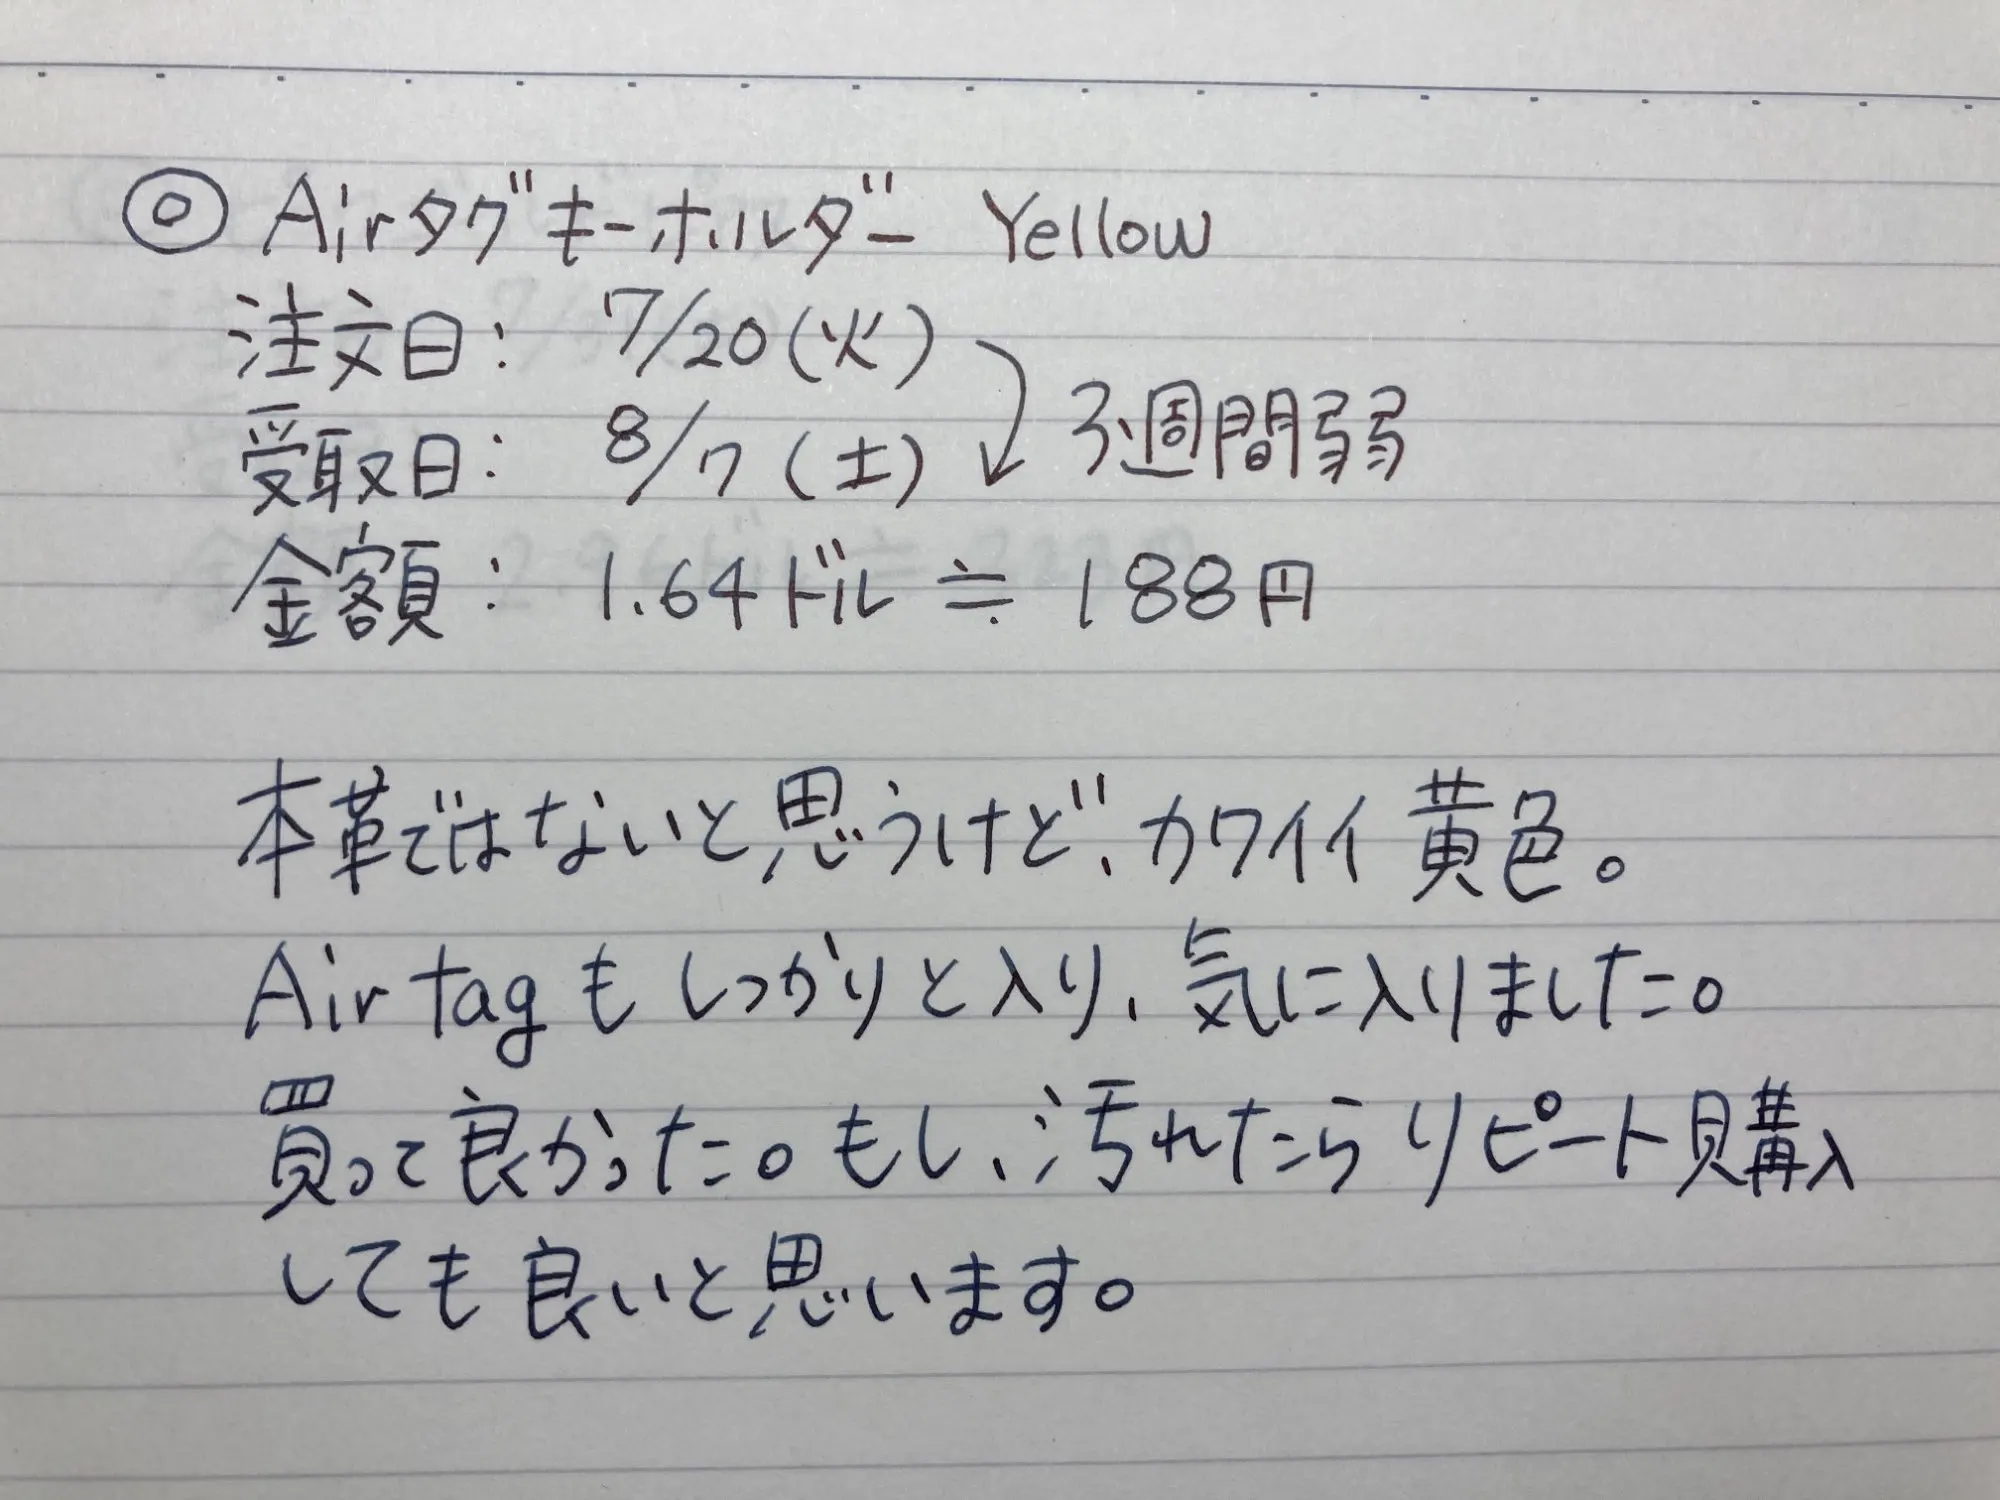 ◎ Airタグキーホルダー Yellow
注文日: 7/20(火)
3週間弱
受取日: 8/7(土)
金額: 1.64ドル≒188円
本革ではないと思うけど、カワイイ黄色。
Air tagもしっかりと入り、気に入りました。
買って良かった。もし、汚れたらリピート購入
しても良いと思います。